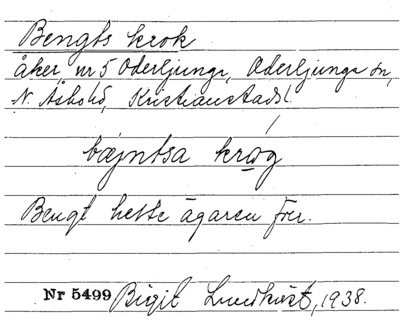 Bengts krok
åker nr 5 Oderljunga, Oderljunga sn,
N. Åsbo hd, Kristianstads l.
bæjntsa krog
Bengt hette ägaren förr.
Nr 5499 Birgit Lundkvist, 1938.